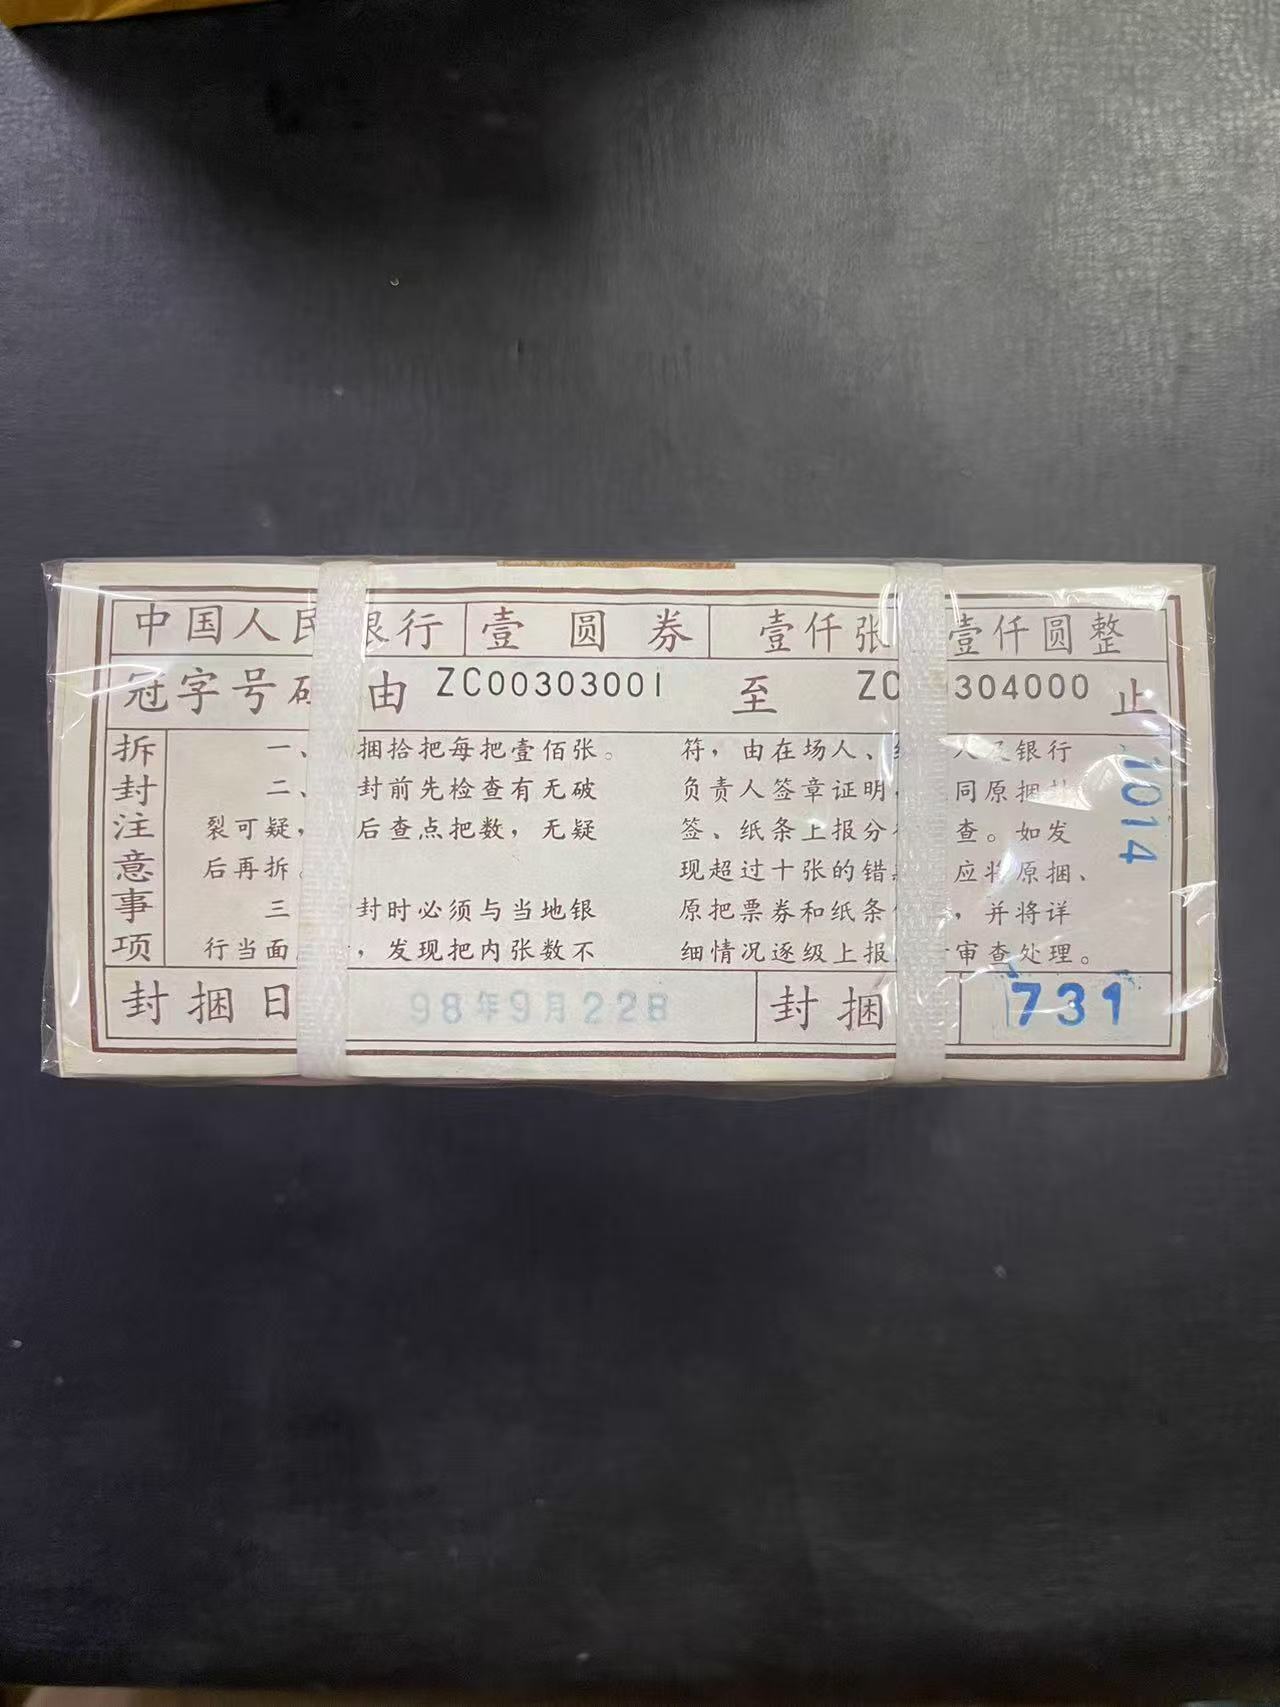 中国人民银行 壹圆券 壹仟张 壹仟圆整
冠字号码由 ZC00303001 至 ZC 304000 止
拆封注意事项
一、 捆拾把每把壹佰张。
二、 封前先检查有无破
裂可疑, 后查点把数，无疑
后再拆。
三 封时必须与当地银
行当面 ，发现把内张数不
符，由在场人、 人及银行
负责人签章证明， 同原捆封
签、纸条上报分行 查。如发
现超过十张的错 应将原捆、
原把票券和纸条 ，并将详
细情况逐级上报 审查处理。
1014
封捆日 98年9月22日 封捆 731